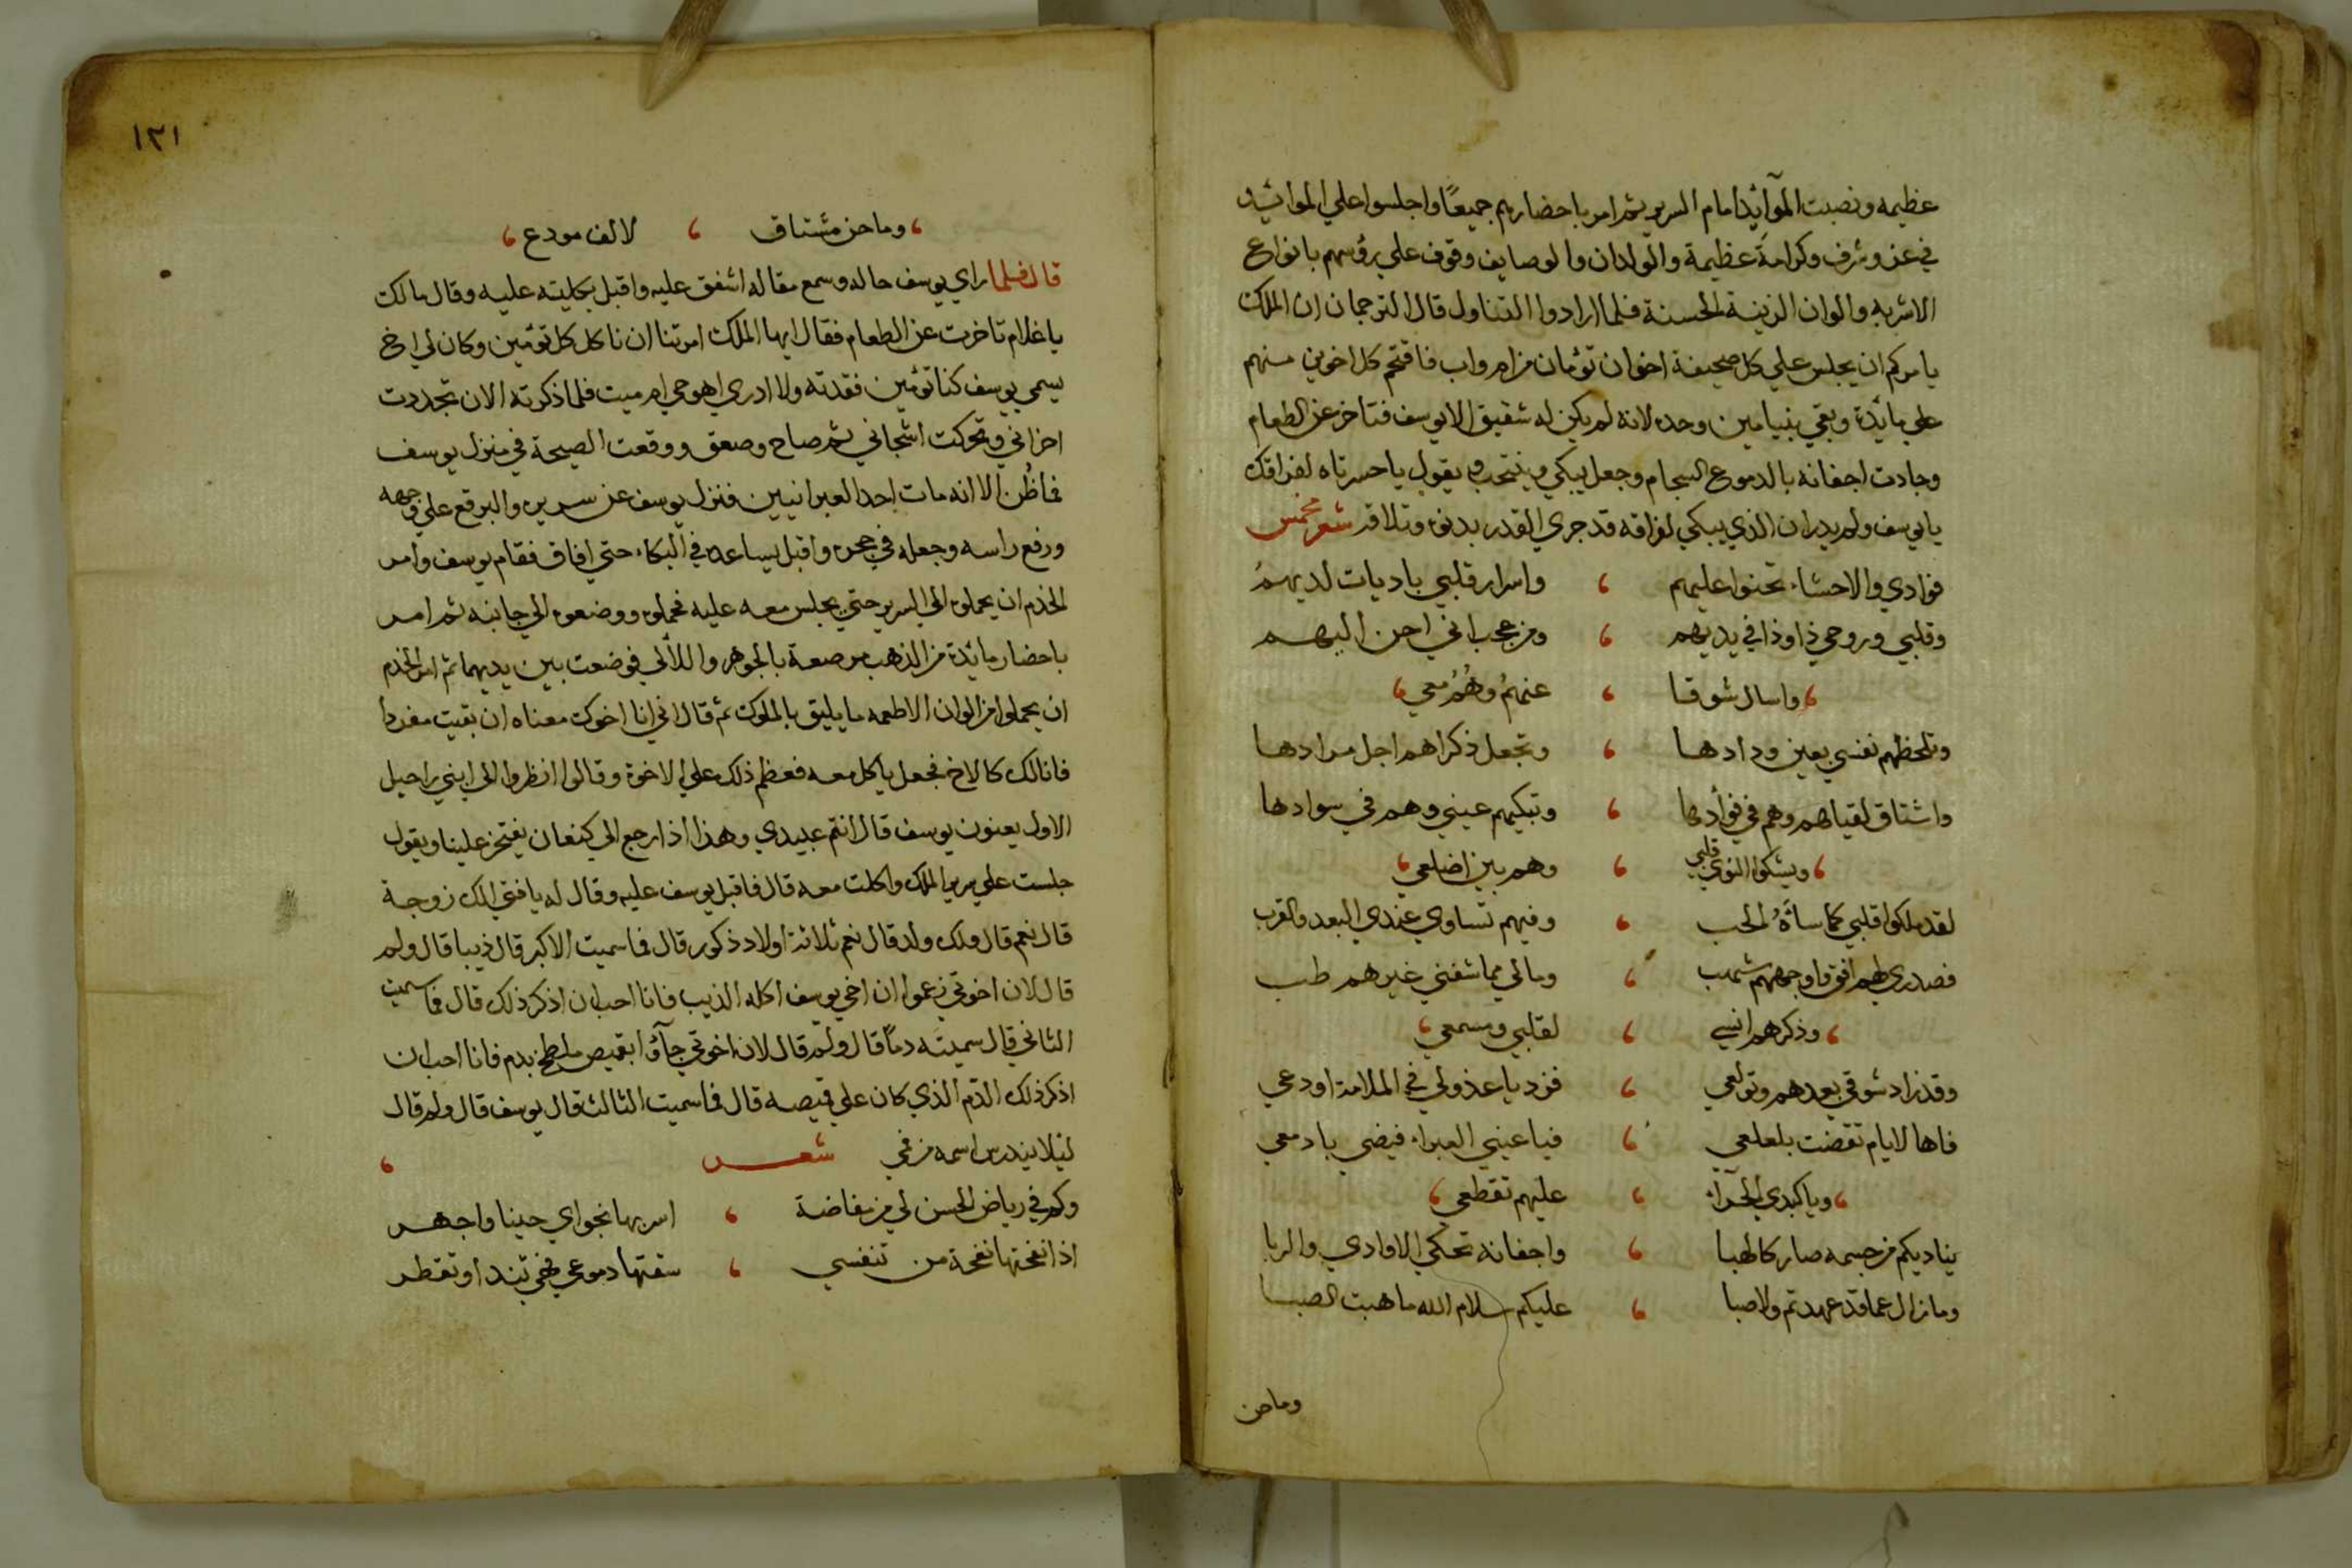 عظيمه ونصبت الموآئد امام السرير ثم امر باحضارهم جميعًا واجلسوا علي الموائد
في عز وشرف وكرامة عظيمة والولدان والوصايف وقوف علي رؤسهم بانواع
الاشربه والوان الزينة الحسنة فلما ارادوا التناول قال الترجمان ان الملك
يامركم ان يجلس علي كل صحيفة اخوان توئمان من ام واب فاقتحم كل اخوين منهم
علي مائدة وبقي بنيامين وحده لانه لم يكن له شقيق الا يوسف فتاخر عن الطعام
وجادت اجفانه بالدموع السجام وجعل يبكي وينتحب ويقول يا حسرتاه لفراقك
يا يوسف ولم يدر ان الذي يبكي لفراقه قد جري القدر بدنوه وتلاقه شعر مخمس
فوادي والاحشاء تحنوا عليهم ، واسرار قلبي باديات لديهمُ
وقلبي وروحي ذا وذا في يديهم ، ومن عجب اني احن اليهم
، واسال شوقا ، عنهمُ وهُمُ معي ،
وتلحظهم نفسي بعين ودادها ، وتجعل ذكراهم اجل مرادها
واشتاق لقياهم وهم في فوأدها ، وتبكيهم عيني وهم في سوادها
، ويشكوا النوي قلبي ، وهم بين اضلعي ،
لقد ملكوا قلبي كما شأَهُ الحب ، وفيهم تساوي عندي البعد والقرب
فصدري لهم افق واوجههم شهب ، ومالي مما شفني غيرهم طب
، وذكرهم انسي ، لقلبي ومسمعي ،
وقد زاد شوقي بعدهم وتولعي ، فزد يا عذولي في الملامة او دعي
فاها لايام تقضت بلعلعي ، فيا عيني العبراء فيضي بادمعي
، ويا كبدي الحرآء ، عليهم تقطعي ،
يناديكم من جسمه صار كالهبا ، واجفانه تحكي الاوادي والربا
وما زال عما قد عهدتم ولا صبا ، عليكم سلام الله ما هبت الصبا
وما حن
١٣١
، وما حن مشتاق ، لالف مودع ،
قال فلما راي يوسف حاله وسمع مقاله اشفق عليه واقبل بكليته عليه وقال مالك
يا غلام تاخرت عن الطعام فقال ايها الملك امرتنا ان ناكل كل توئمين وكان لي اخ
يسمي يوسف كنا توئمين فقدته ولا ادري اهو حي ام ميت فلما ذكرته الان تجددت
احزاني وتحركت اشجاني ثم صاح وصعق ووقعت الصيحة في منزل يوسف
فما ظُن الا انه مات احد العبرانيين فنزل يوسف عن سريره والبرقع علي وجهه
ورفع راسه وجعله في حجره واقبل يساعده في البكاء حتي افاق فقام يوسف وامر
الخدم ان يحملوه الي السرير حتي يجلس معه عليه فحملوه ووضعوه الي جانبه ثم امر
باحضار مائدة من الذهب مرصعة بالجوهر واللألي فوضعت بين يديهما ثم امر الخدم
ان يحملوا من الوان الاطعمه ما يليق بالملوك ثم قال اني انا اخوك معناه ان بقيت مفردا
فانا لك كالاخ فجعل ياكل معه فعظم ذلك علي الاخوة وقالوا انظروا الي ابني راحيل
الاول يعنون يوسف قال انتم عبيدي وهذا اذا رجع الي كنعان يفتخر علينا ويقول
جلست علي سرير الملك واكلت معه قال فاقبل يوسف عليه وقال له يا فتي الك زوجة
قال نعم قال ولك ولد قال نعم ثلاثة اولاد ذكور قال فما سميت الاكبر قال ذيبا قال ولم
قال لان اخوتي زعموا ان اخي يوسف اكله الذيب فانا احب ان اذكر ذلك قال فما سميت
الثاني قال سميته دمًا قال ولم قال لان اخوتي جآؤا بقميص ملطخ بدم فانا احب ان
اذكر ذلك الدم الذي كان علي قميصه قال فما سميت الثالث قال يوسف قال ولم قال
ليلا يندرس اسمه من في شعر ،
وكم في رياض الحسن لي من مفاضة ، اسر بها نجواي حينا واجهر
اذا نفحتها نفحة من تنفسي ، سقتها دموعي فهي تندا وتقطر